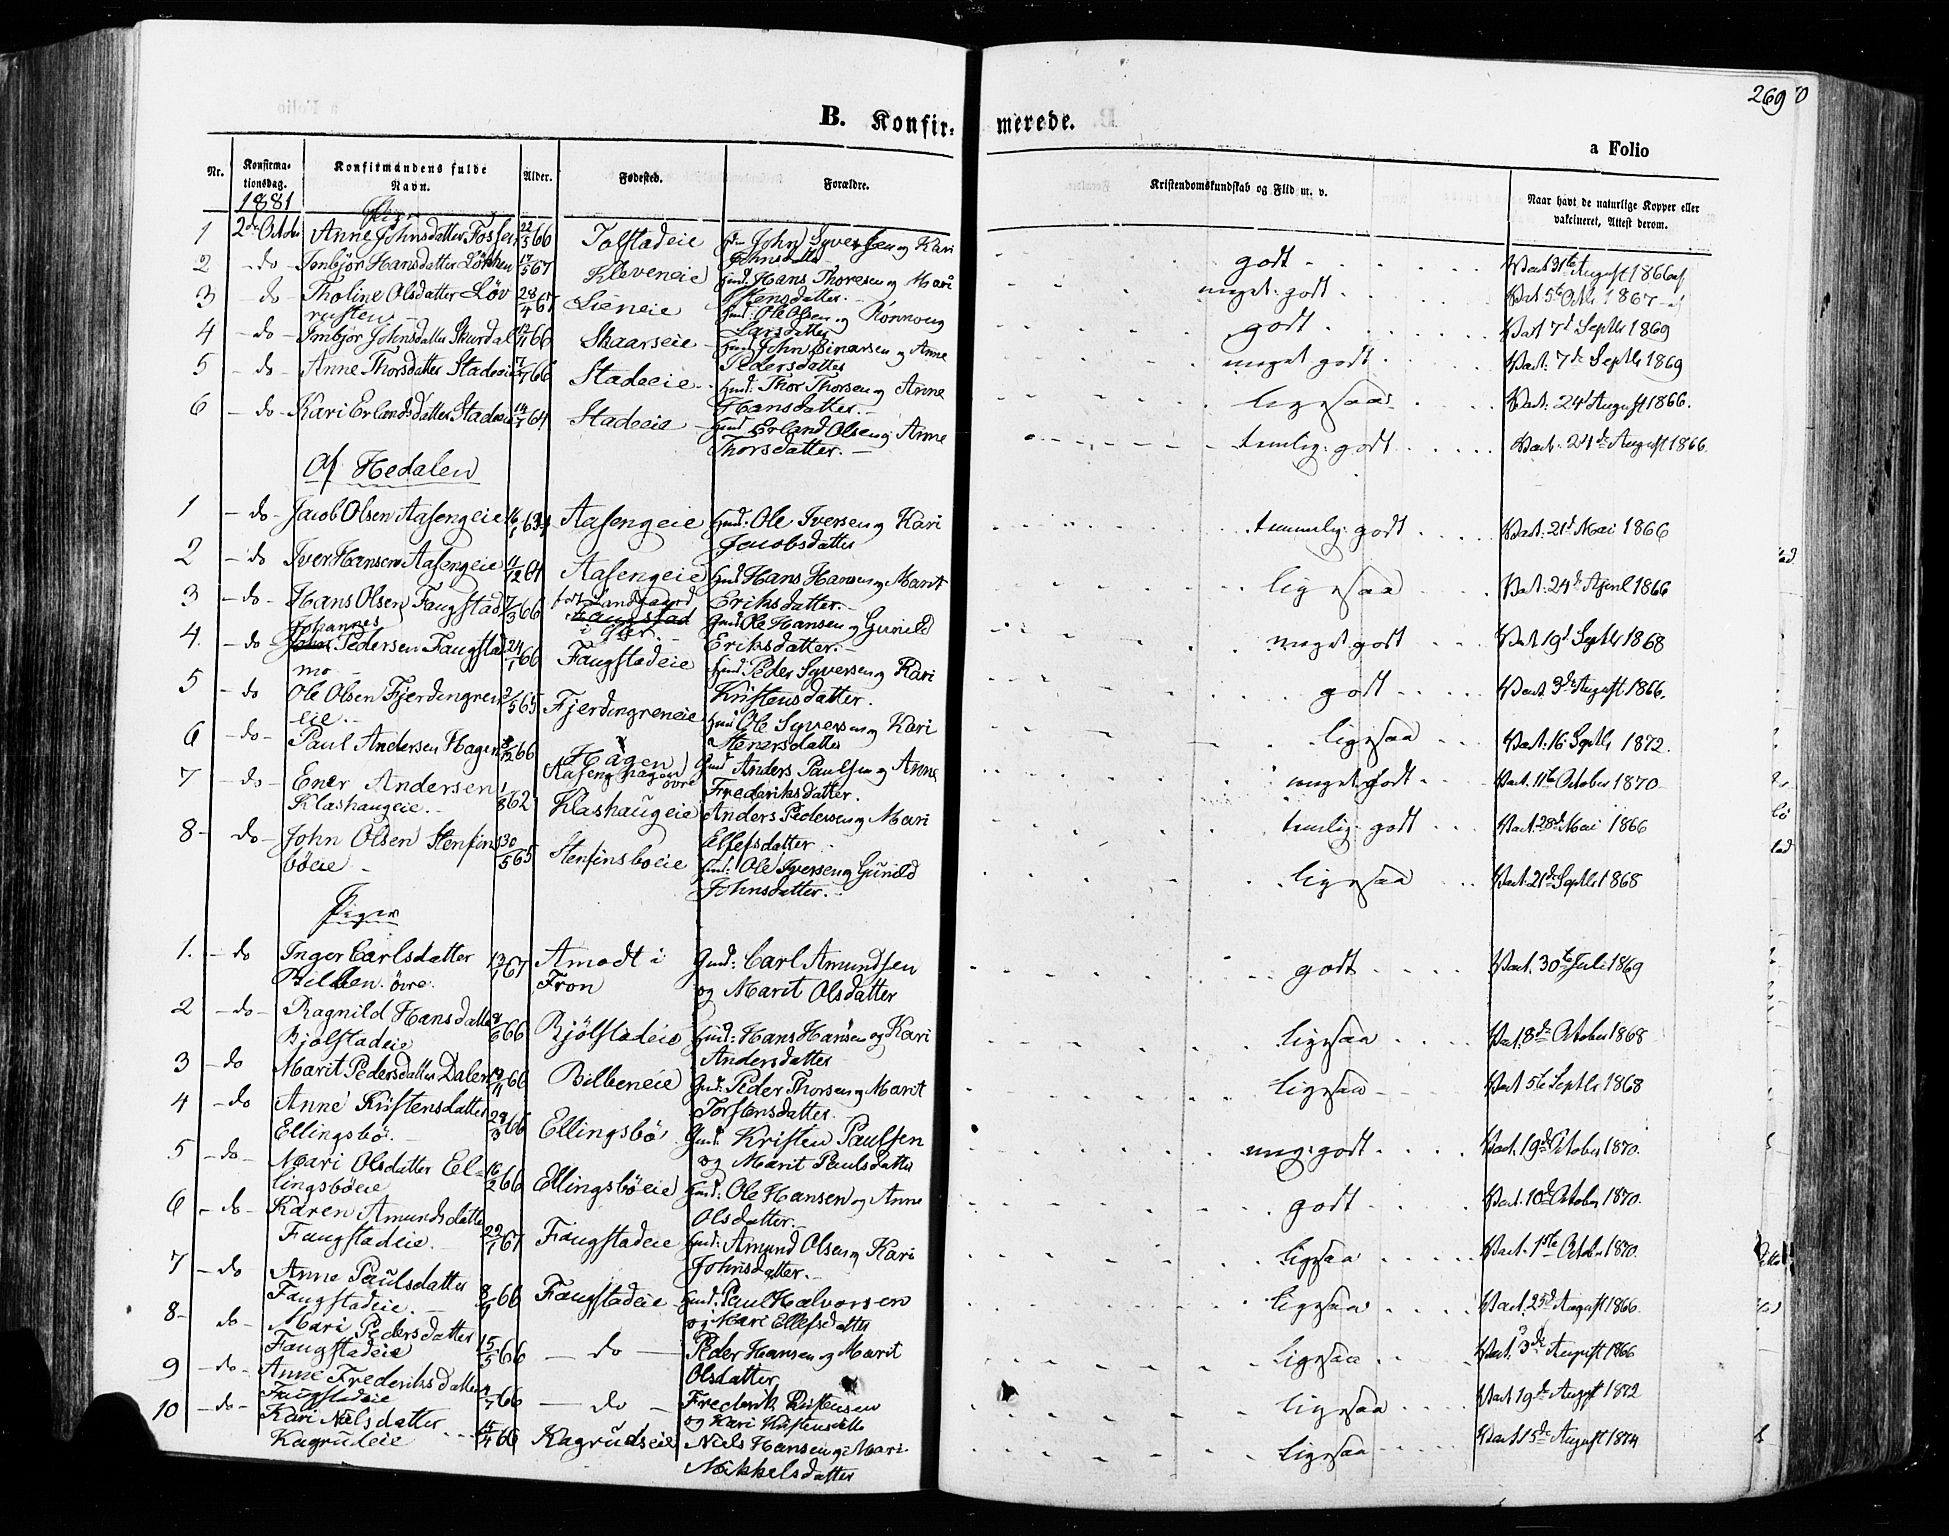 269
B. Konfirmerede.
a Folio
Nr. Konfirmationsdag. Konfirmandens fulde Navn. Alder. Fødested. Forældre. Kristendomskundskab og Flid m. v. Naar havt de naturlige Kopper eller vakcineret, Attest derom.
1881
1 2de Octobr Anne Johnsdatter Fossen 22/5 66 Tolstadeie John Syversen og Kari Johnsdatter godt Vact 31te August 1866
2 do Imbjør Hansdatter Løkken 17/5 67 Kleveneie Gmd: Hans Thoresen og Mari Stensdatter. meget godt Vact 5te Octbr 1867
3 do Tholine Olsdatter Løvrusten 28/4 67 Lieneie Gmd: Ole Olsen og Rønnoug Larsdatter godt Vact 7d Septbr 1869
4 do Imbjør Johnsdatter Skurdal 66 Skaarseie Gmd John Einarsen og Anne Pedersdatter meget godt Vact: 7de Septbr 1869
5 do Anne Thorsdatter Stadeeie 66 Stadeeie Gmd: Thor Thorsen og Anne Hansdatter. ligesaa Vact: 24d August 1866.
6 do Kari Erlandsdatter Stadeeie 64 Stadeeie Gmd Erland Olsen og Anne Thorsdatter. temlig: godt Vact. 24de August 1866.
Af Hedalen
1 do Jacob Olsen Aasengeie Aasengeie Gmd: Ole Iversen og Kari Jacobsdatter temmelig: godt Vact: 21d Mai 1866
2 do Iver Hansen Aasengeie 11/12 64 Aasengeie Gmd Hans Hansen og Marit Eriksdatter. ligesaa Vact: 24de April 1866
3 do Hans Olsen Faugstad 7/3 66 Faugstad Gmd Ole Hansen og Gunild Eriksdatter. meget godt Vact 19d Septbr 1868
4. do Johannes Pedersen Faugstadmo 24/1 66 Faugstadeie Gmd: Peder Syversen og Kari Kristensdatter. godt Vact. 3de August 1866.
5 do Ole Olsen Fjerdingreneie 2/5 65 Fjerdingreneie Gmd Ole Syversen og Kari Stenersdatter ligesaa Vact: 16 Septbr 1872.
6 do Paul Andersen Hagen 66 Hagen Aasenghagen øvre Gmd Anders Paulsen og Anne Frederiksdatter. meget godt Vact. 11te October 1870
7 do Ener Andersen Klashaugeie. 1/8 62 Klashaugeie Anders Pedersen og Mari Ellefsdatter temlig: godt Vact. 28d Mai 1866
8 do John Olsen Stenfinsbøeie 30/5 65 Stenfinsboeie Gmd: Ole Iversen og Gunild Johnsdatter. ligesaa Vact. 21de Septbr 1868
Piger
1. do Inger Carlsdatter Bilben øvre. 67 Amodt i Fron Gmd: Carl Amundsen og Marit Olsdatter godt Vact. 30te Juli 1869
2 do Ragnild Hansdatter Bjølstadeie 8/6 66 Bjølstadeie Gmd: Hans Hansen og Kari Andersdatter ligesaa Vact. 8de October 1868
3 do Marit Pedersdatter Dalen 66 Bilbeneie Gmd: Peder Thorsen og Marit Torstensdatter ligesaa Vact 5te Septbr 1868
4 do Anne Kristensdatter Ellingsbø. 29/3 66 Ellingsbø Gmd: Kristen Paulsen og Marit Paulsdatter meg: godt Vact. 19de October 1870.
5 do Mari Olsdatter Ellingsbøeie 16/2 66 Ellingsbøeie Gmd: Ole Hansen og Anne Olsdatter. godt Vact. 10de October 1870.
6 do Karen Amundsdatter Faugstadeie. 22/1 67 Faugstadeie Gmd: Amund Olsen og Kari Johnsdatter. ligesaa Vact. 1ste October 1870.
7 do Anne Paulsdatter Faugstadeie. 66 Faugstadeie Gmd: Paul Halvorsen og Mari Ellefsdatter ligesaa Vact. 25d August 1866.
8 do Mari Pedersdatter Faugstadeie 15/5 66 do Peder Hansen og Marit Olsdatter ligesaa Vact. 3de August 1866
9 do Anne Frederiksdatter Faugstadeie 66 do Frederik Kristensen og Kari Kristensdatter ligesaa Vact 19de August 1872
10 do Kari Nielsdatter Kagrudeie 66 Kagrudseie Niels Hansen og Mari Nikkelsdatter ligesaa Vact 15de August 1874